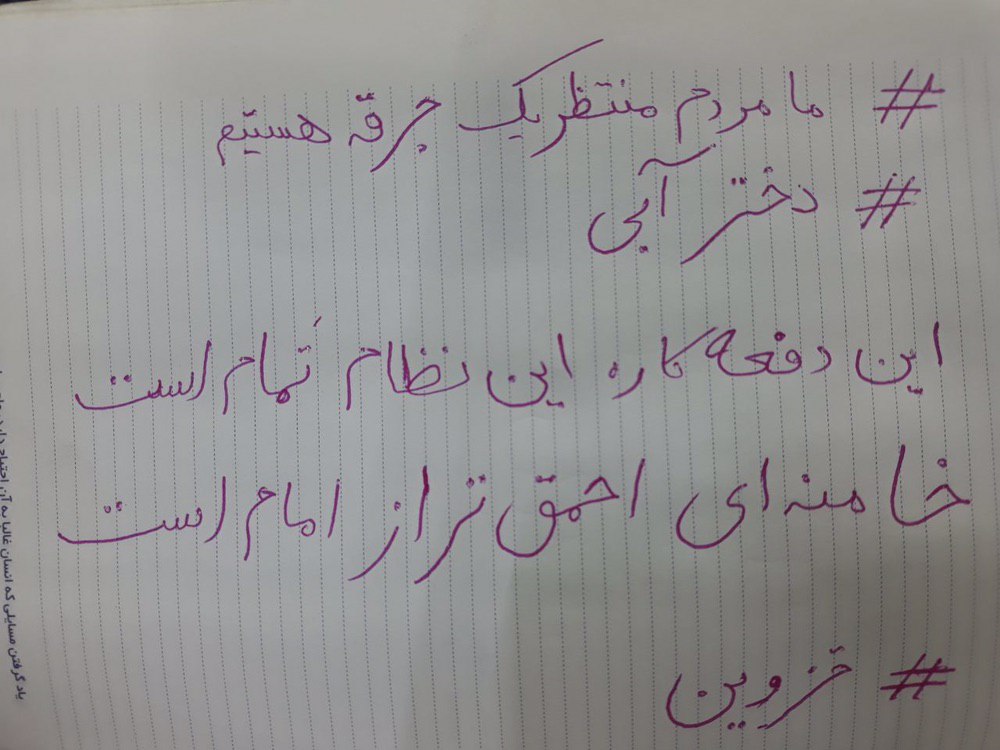 # ما مردم منتظر یک جرقه هستیم
# دختر آبی
این دفعه کاره این نظام تمام است
خامنه ای احمق تر از امام است
# قزوین
یاد گرفتن مسایلی که انسان غالبا به آن احتیاج دارد